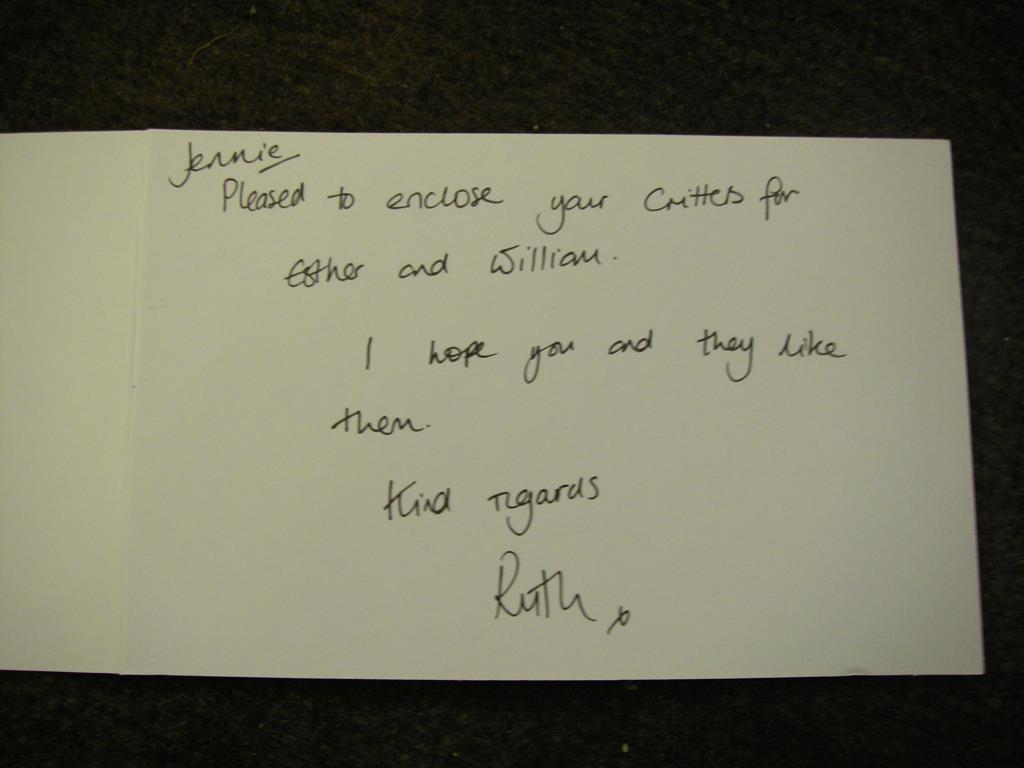 Jennie
Pleased to enclose your Critters for
Esther and William.
I hope you and they like
them.
Kind regards
Ruth x